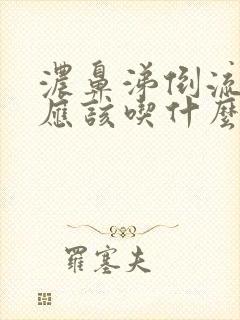 濃鼻涕倒流
應該喫什麼
羅塞夫